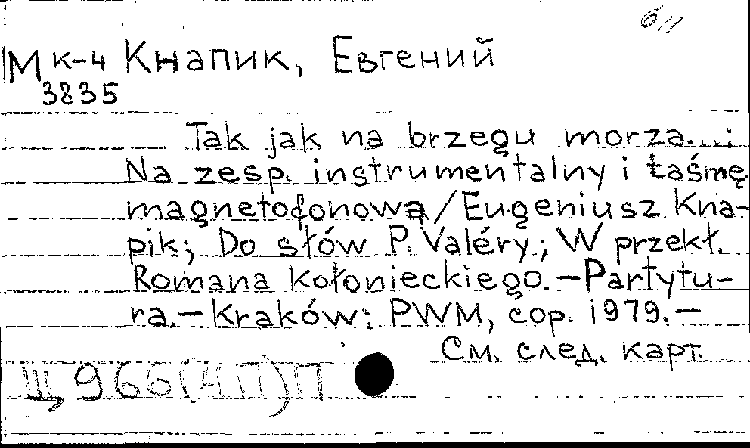 М к-4 Кнапик, Евгений
3835
Tak jak na brzegu morza...:
Na zesp. instrumentalny i taśmę
magnetofonową/Eugeniusz Kna-
pik; Do słów P. Valéry.; W przekł.
Romana Kołonieckiego.-Partytu-
ra.-Kraków: PWM, cop. 1979.-
См. след. карт.
Щ 966(4П)П